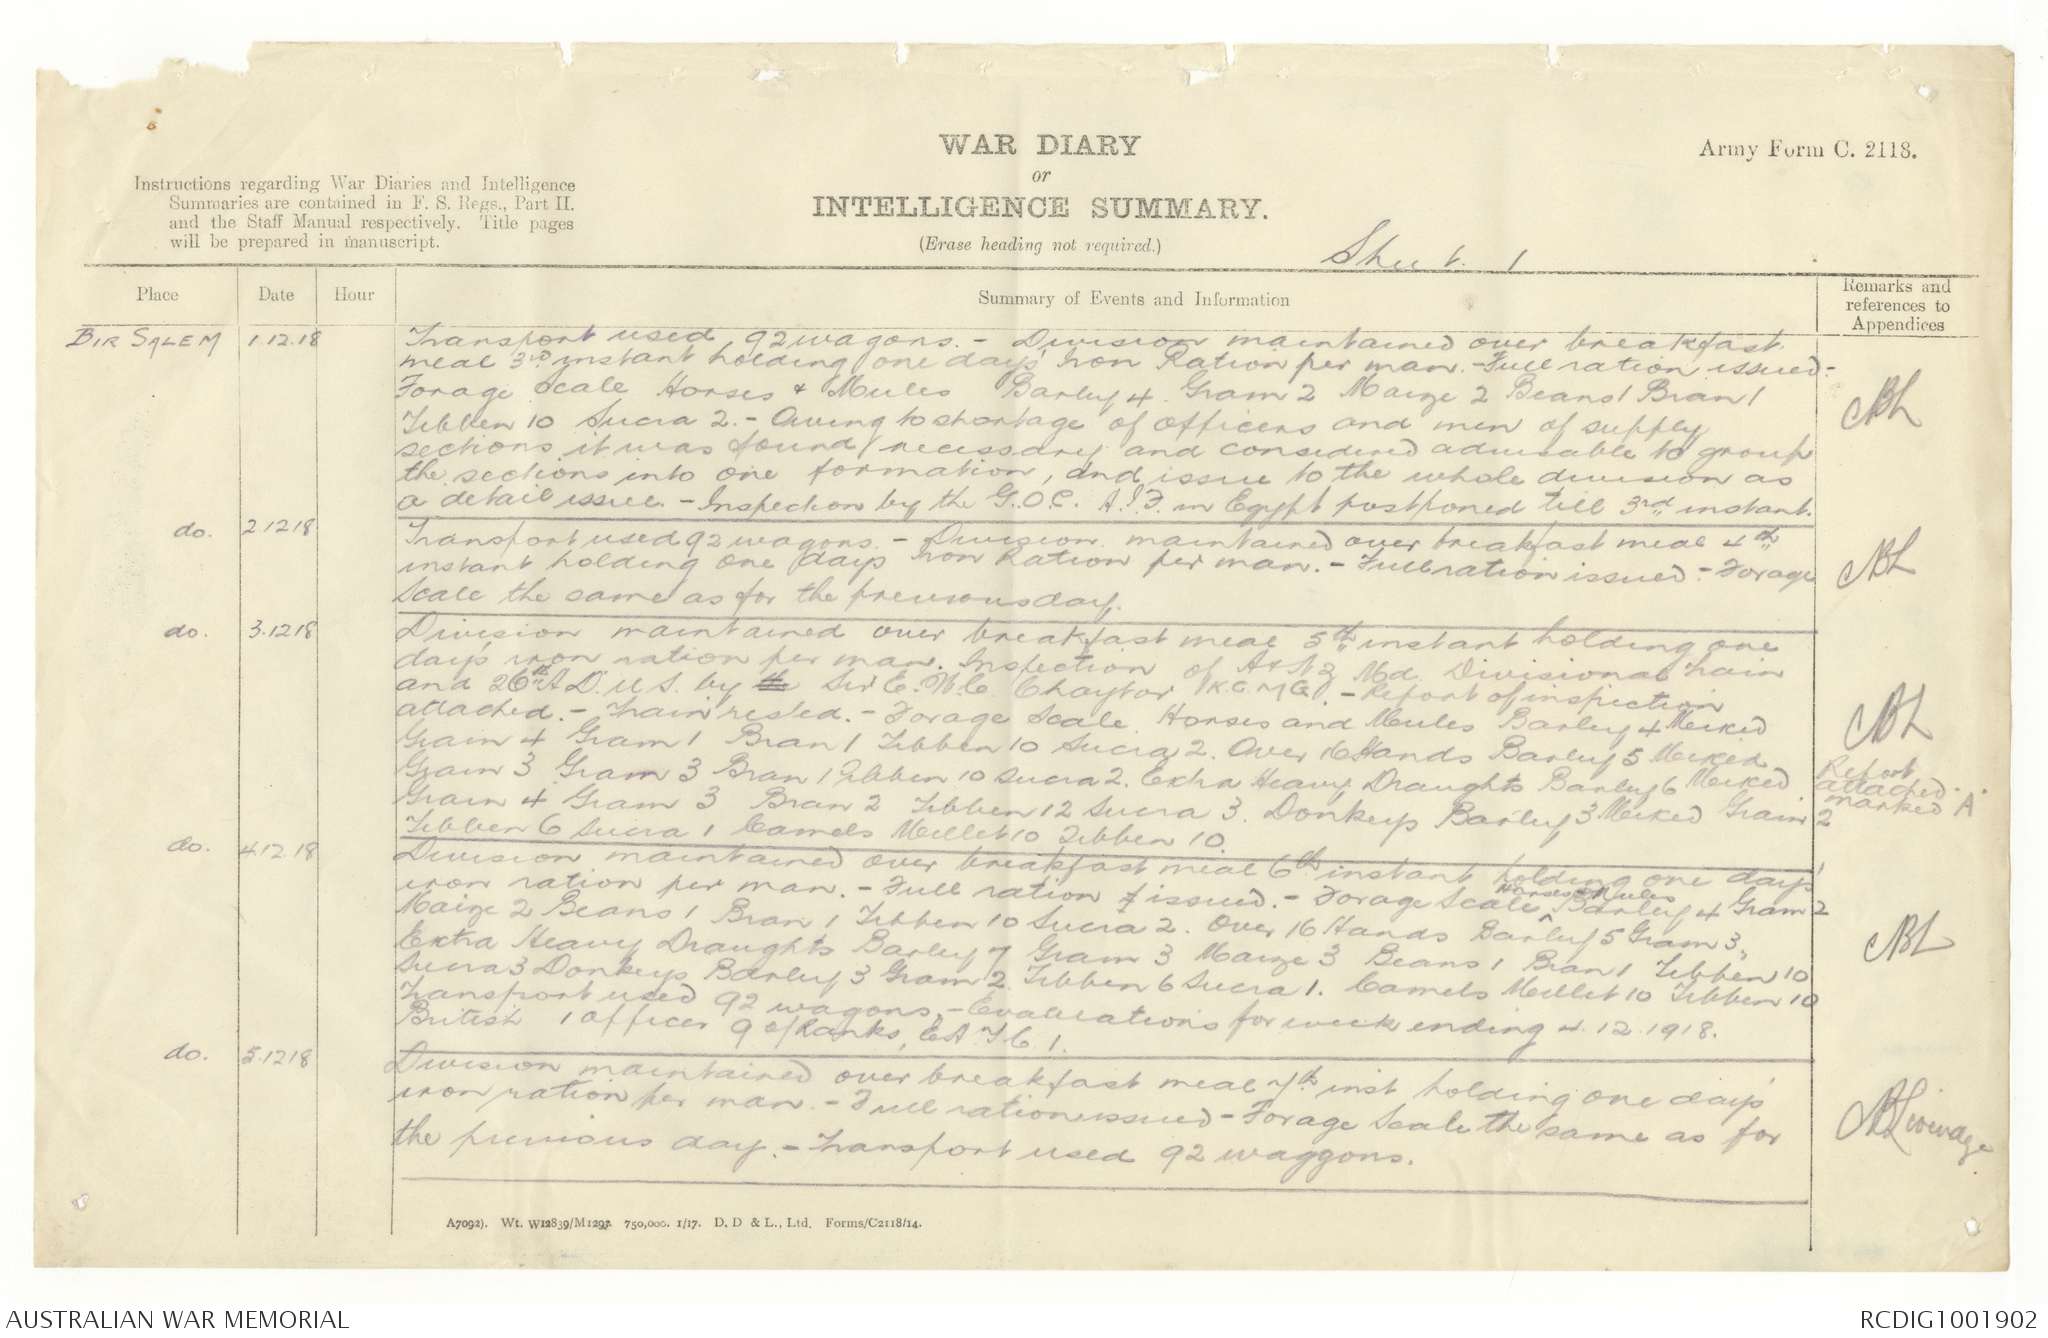 WAR DIARY
or
INTELLIGENCE SUMMARY.
(Erase heading not required.)
Army Form C. 2118.
Instructions regarding War Diaries and Intelligence
Summaries are contained in F. S. Regs., Part II.
and the Staff Manual respectively. Title pages
will be prepared in manuscript.
Sheet. 1
Place Date Hour Summary of Events and Information Remarks and references to Appendices
BIR SALEM 1.12.18 Transport used 92 wagons. - Division maintained over breakfast
meal 3rd instant holding one days' Iron Ration per man. - Full ration issued -
Forage Scale Horses & Mules Barley 4 Gram 2 Maize 2 Beans 1 Bran 1
Tibben 10 Sucra 2. - Owing to shortage of officers and men of supply
sections it was found necessary and considered advisable to group
the sections into one formation, and issue to the whole division as
a detail issue. - Inspection by the G.O.C. A.I.F. in Egypt postponed till 3rd instant.
do. 2.12.18 Transport used 92 wagons. - Division maintained over breakfast meal 4th
instant holding one days Iron Ration per man. - Full ration issued - Forage
Scale the same as for the previous day.
do. 3.12.18 Division maintained over breakfast meal 5th instant holding one
day's iron ration per man. Inspection of A & NZ Md. Divisional Train
and 26th A.D.U.S. by Sir E. W. C. Chaytor K.C.M.G. - Report of inspection
attached. - Train rested. - Forage Scale Horses and Mules Barley 4 Mixed
Grain 4 Gram 1 Bran 1 Tibben 10 Sucra 2. Over 16 Hands Barley 5 Mixed
Grain 3 Gram 3 Bran 1 Tibben 10 Sucra 2. Extra Heavy Draughts Barley 6 Mixed
Grain 4 Gram 3 Bran 2 Tibben 12 Sucra 3. Donkeys Barley 3 Mixed Grain 2
Tibben 6 Sucra 1 Camels Millet 10 Tibben 10.
Report
attached
marked 'A'
do. 4.12.18 Division maintained over breakfast meal 6th instant holding one days'
iron ration per man. - Full ration issued. - Forage Scale Horses & Mules Barley 4 Gram 2
Maize 2 Beans 1 Bran 1 Tibben 10 Sucra 2. Over 16 Hands Barley 5 Gram 3,
Extra Heavy Draughts Barley 7 Gram 3 Maize 3 Beans 1 Bran 1 Tibben 10
Sucra 3 Donkeys Barley 3 Gram 2. Tibben 6 Sucra 1. Camels Millet 10 Tibben 10
Transport used 92 wagons, - Evacuations for week ending 4.12.1918.
British 1 Officer 9 o/Ranks, E.A.T.C 1.
do. 5.12.18 Division maintained over breakfast meal 7th inst holding one days'
iron ration per man. - Full ration issued - Forage Scale the same as for
the previous day. - Transport used 92 waggons.
A7092). Wt. W12839/M1297. 750,000. 1/17. D. D & L., Ltd. Forms/C2118/14.
AUSTRALIAN WAR MEMORIAL
RCDIG1001902